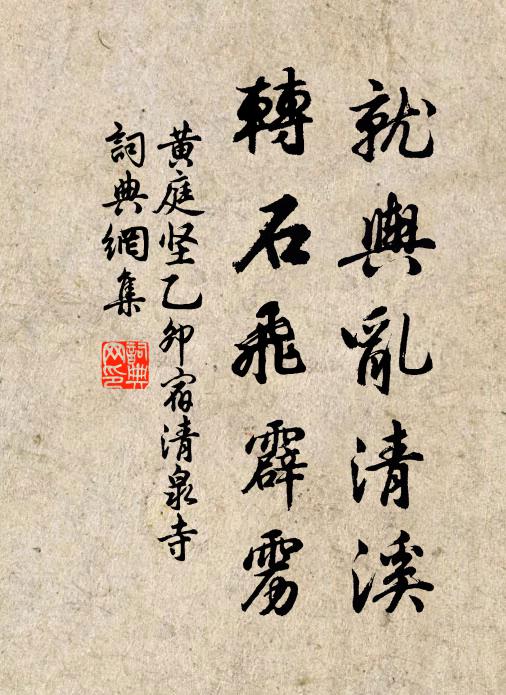 就輿亂清溪
轉石飛霹雳
黄庭坚乙卯宿清泉寺
詞典網集
詞典網印